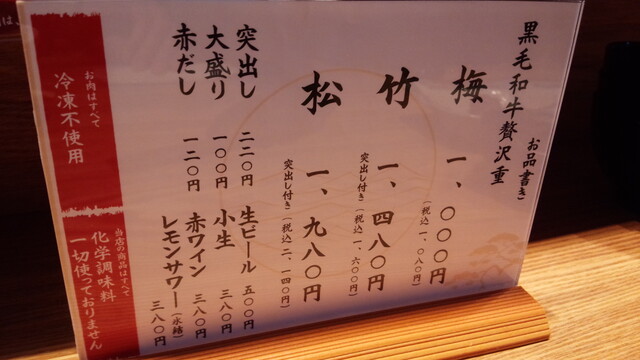 黒毛和牛贅沢重
お品書き
梅 一、〇〇〇円
(税込 一、〇八〇円)
竹 一、四八〇円
突出し付き(税込 一、六〇〇円)
松 一、九八〇円
突出し付き(税込 二、一四〇円)
突出し 二二〇円
大盛り 一〇〇円
赤だし 一二〇円
生ビール 五〇〇円
小生 三八〇円
赤ワイン 三八〇円
レモンサワー(氷結) 三八〇円
お肉はすべて
冷凍不使用
当店の商品はすべて
化学調味料
一切使っておりません